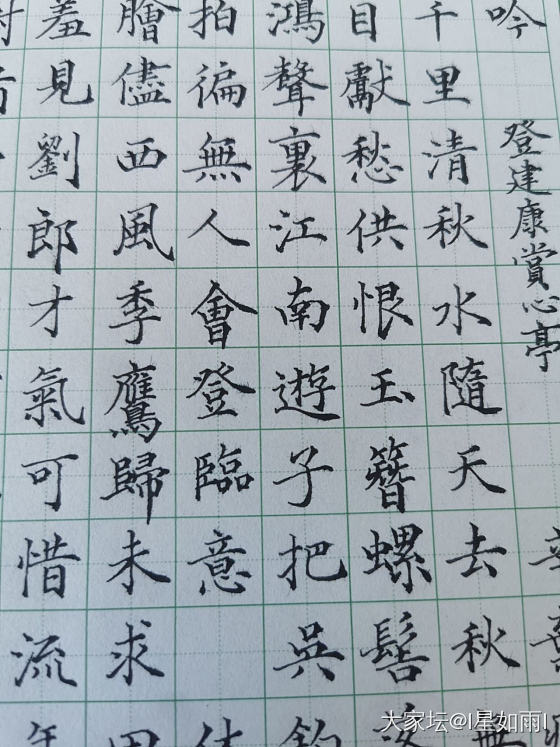 吟
登建康賞心亭
千里清秋水隨天去秋無
目獻愁供恨玉簪螺髻落
鴻聲裏江南遊子把吳鈎
拍徧無人會登臨意 休
膾儘西風季鷹歸未求田
羞見劉郎才氣可惜流年
大家坛@I星如雨I